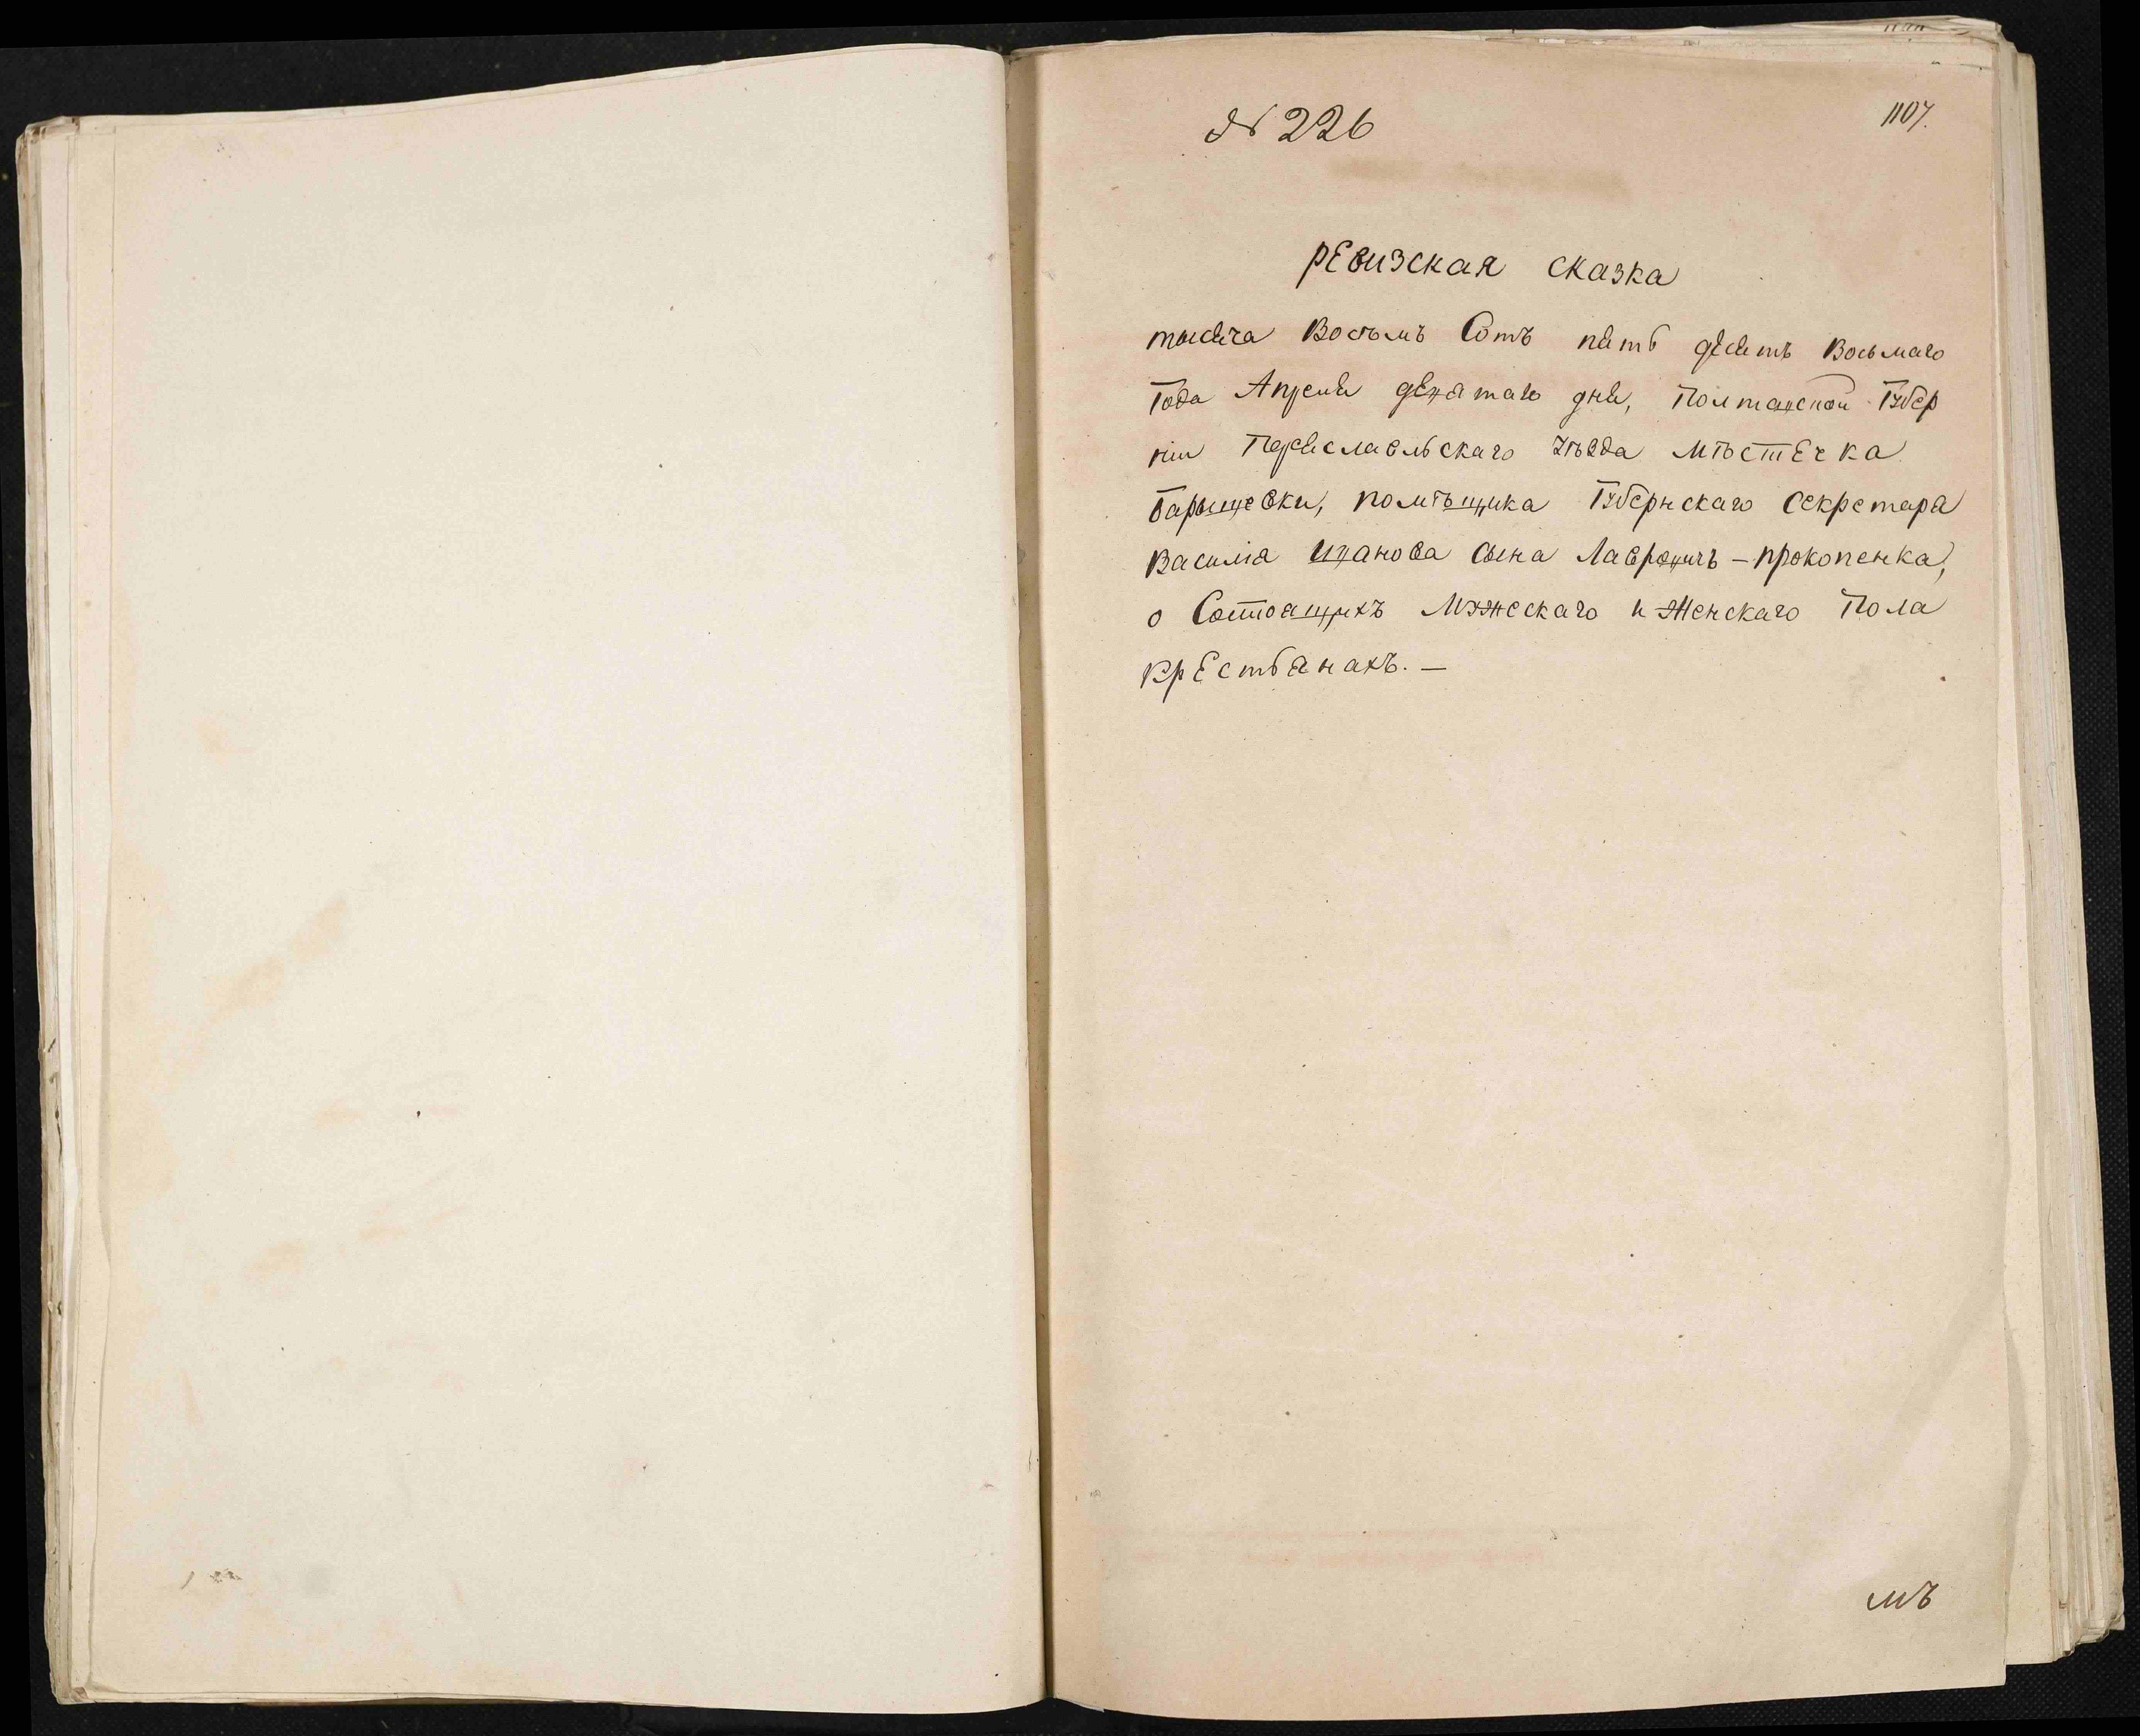 № 226
1107.
РЕвизская сказка
тысяча Восѣмъ Сотъ пять десятъ Восьмаго
Года Апреля девятаго дня, Полтавской Губер
ніи Переяславльскаго Уѣзда МѣстЕчка
Барышевки, помѣщика Губернскаго Секретаря
Василія Иванова сына Лавровичъ - Прокопенка,
о Состоящихъ Мужескаго и Женскаго Пола
КрЕстьянахъ. —
мъ